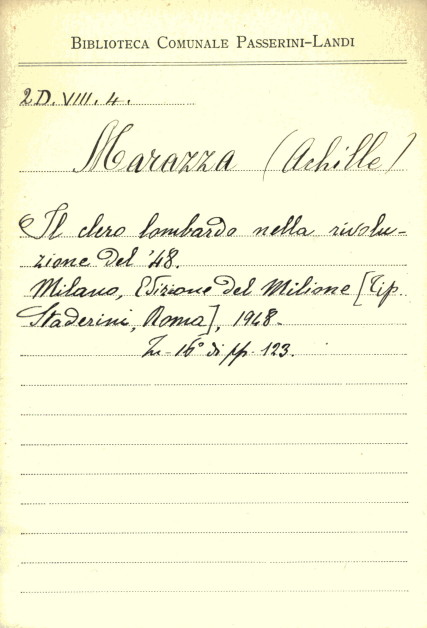 BIBLIOTECA COMUNALE PASSERINI-LANDI
2D. VIII. 4.
Marazza (Achille)
Il clero lombardo nella rivolu-
zione del '48.
Milano, Edizione del Milione [Tip.
Staderini, Roma], 1948.
In-16° di pp. 123.